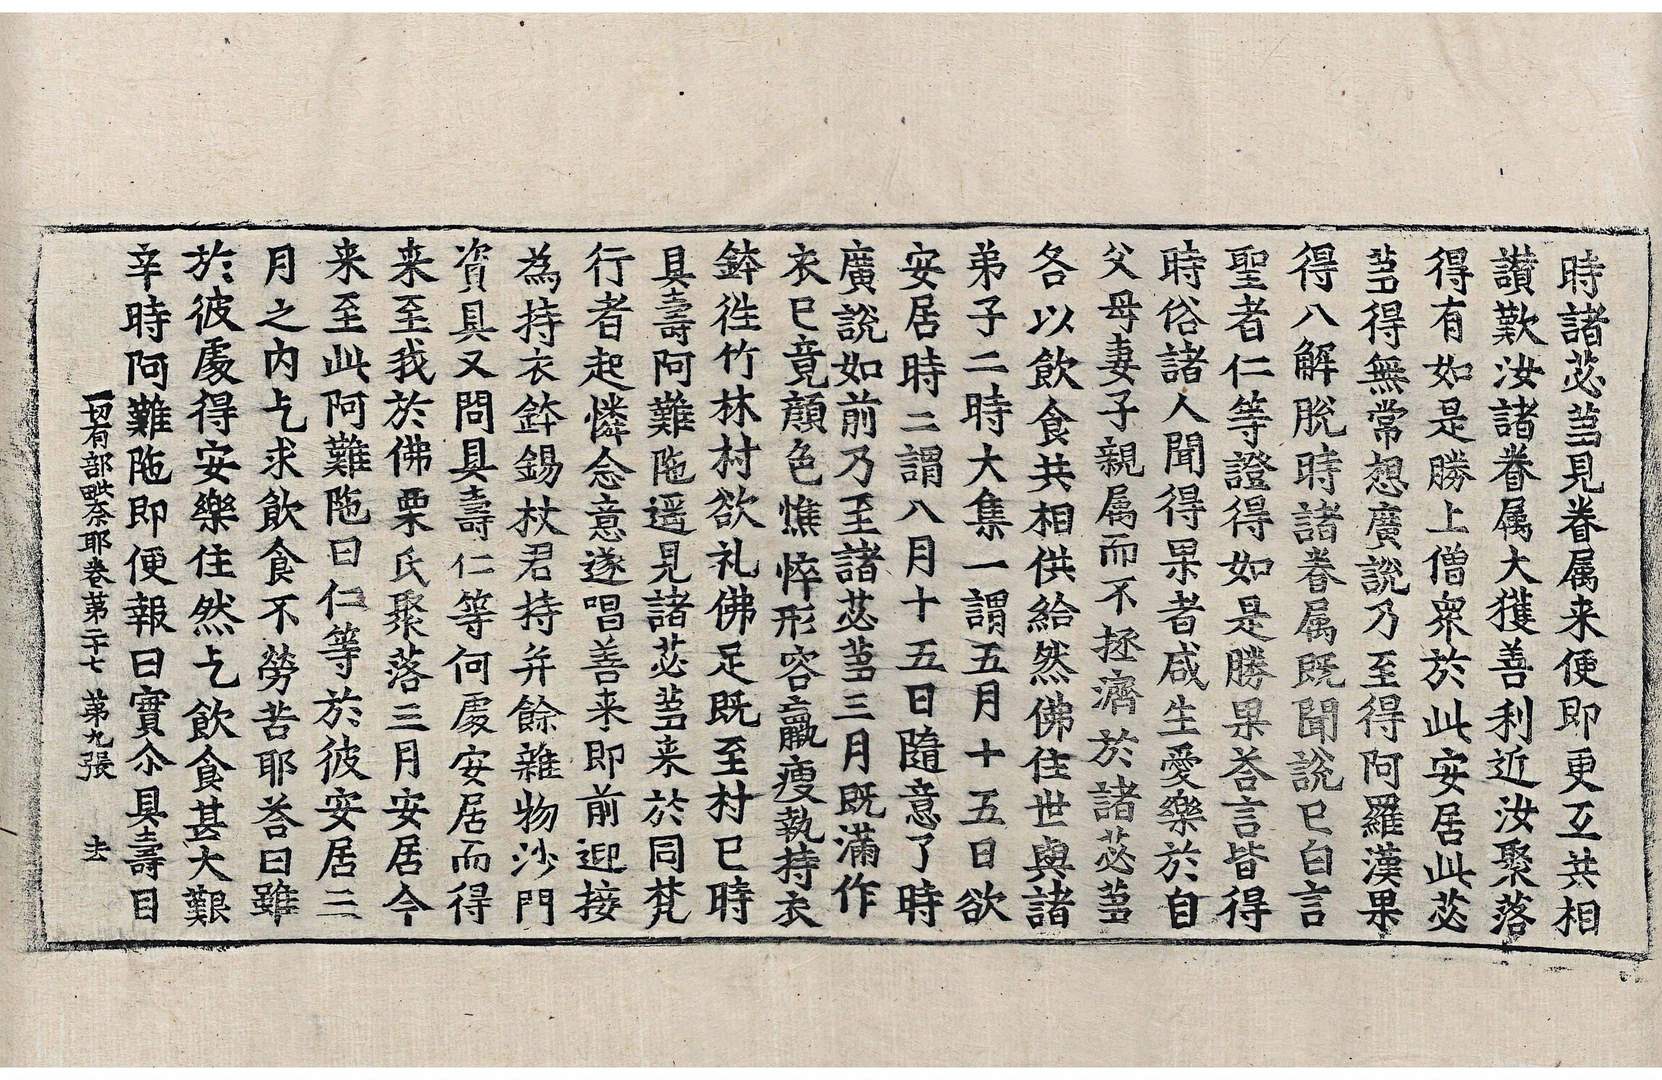 時諸苾蒭見眷属来便即更互共相
讃歎汝諸眷属大獲善利近汝聚落
得有如是勝上僧衆於此安居此苾
蒭得無常想廣說乃至得阿羅漢果
得八解脫時諸眷属既聞說已白言
聖者仁等證得如是勝果荅言皆得
時俗諸人聞得果者咸生愛樂於自
父母妻子親属而不拯濟於諸苾蒭
各以飲食共相供給然佛住世與諸
弟子二時大集一謂五月十五日欲
安居時二謂八月十五日隨意了時
廣說如前乃至諸苾蒭三月既滿作
衣已竟顔色憔悴形容羸瘦執持衣
鉢徃竹林村欲礼佛足既至村已時
具壽阿難陁遥見諸苾蒭来於同梵
行者起憐念意遂唱善来即前迎接
為持衣鉢錫杖君持并餘雜物沙門
資具又問具壽仁等何處安居而得
来至我於佛栗氏聚落三月安居今
来至此阿難陁曰仁等於彼安居三
月之内乞求飲食不勞苦耶荅曰雖
於彼處得安樂住然乞飲食甚大艱
辛時阿難陁即便報曰實尒具壽目
一切有部毗奈耶卷第二十七 第九張 去